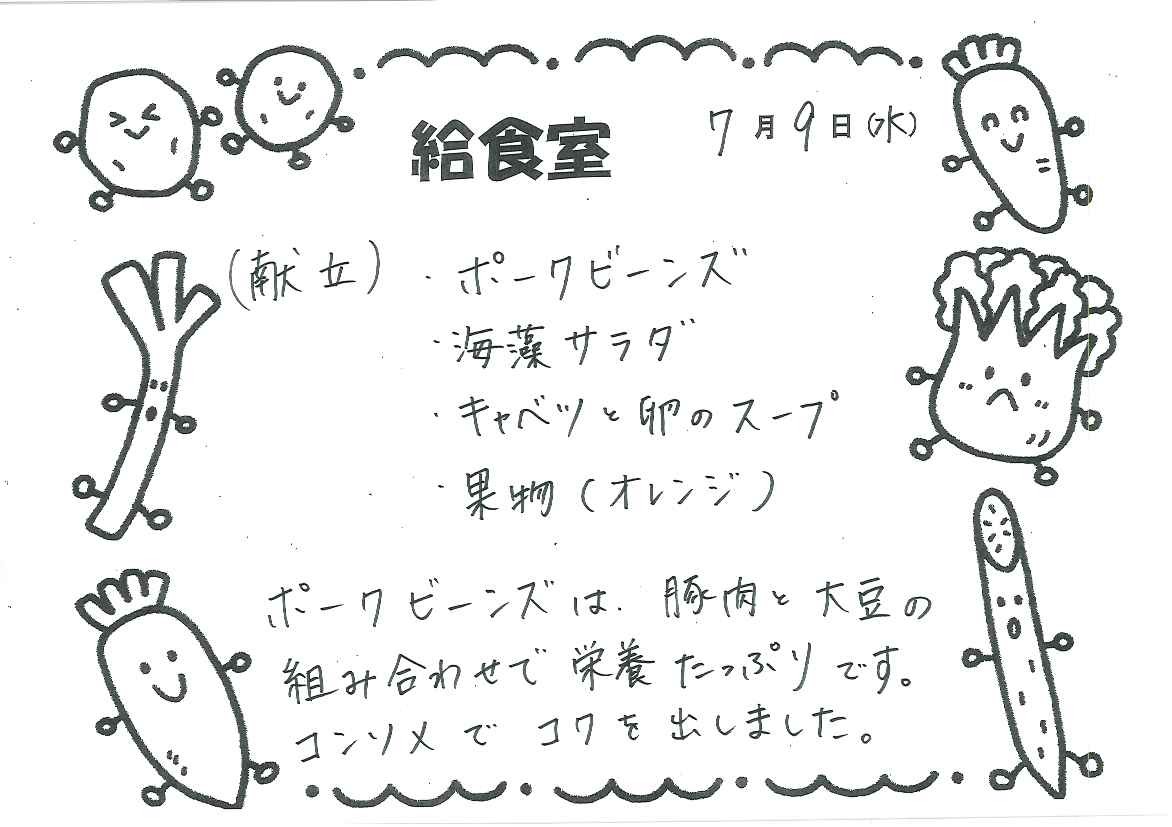 給食室
7月9日(水)
(献立)・ポークビーンズ
・海藻サラダ
・キャベツと卵のスープ
・果物(オレンジ)
ポークビーンズは、豚肉と大豆の
組み合わせで栄養たっぷりです。
コンソメでコクを出しました。